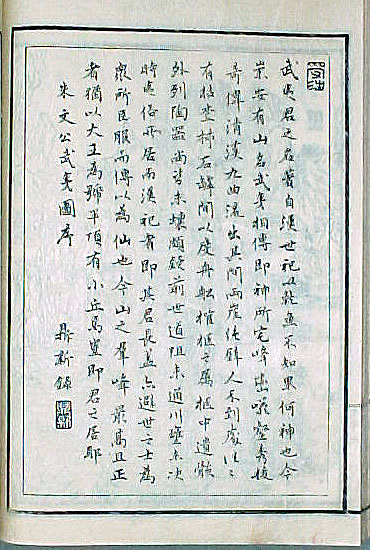 武夷君之名著自漢世祀以乾魚不知果何神也今
崇安有山名武夷相傳即神所宅峰巒巖壑秀拔
奇偉清溪九曲流出其間兩崖絕壁人不到處往〻
有枯查插石罅間以庋舟船棺柩之屬柩中遺骸
外列陶器尚皆未壞頗疑前世道阻未通川壅未決
時夷俗所居而漢祀者即其君長蓋亦避世之士為
眾所臣服而傳以為仙也今山之羣峰最高且正
者猶以大王為號半頂有小丘焉豈即君之居耶
朱文公武夷圖序
鼎新錄